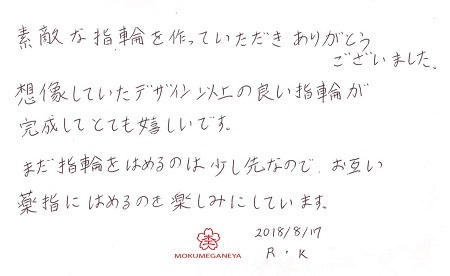 素敵な指輪を作っていただきありがとう
ございました。
想像していたデザイン以上の良い指輪が
完成してとても嬉しいです。
まだ指輪をはめるのは少し先なので、お互い
薬指にはめるのを楽しみにしています。
2018/8/17
R・K
MOKUMEGANEYA